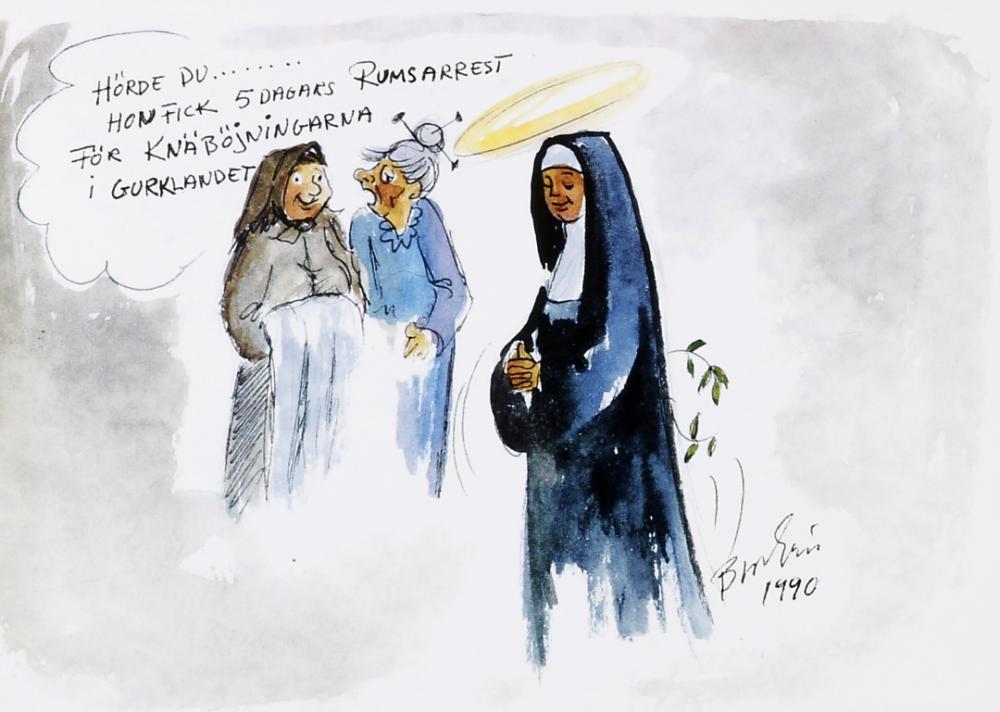 HÖRDE DU........
HON FICK 5 DAGARS RUMSARREST
FÖR KNÄBÖJNINGARNA
i GURKLANDET
1990